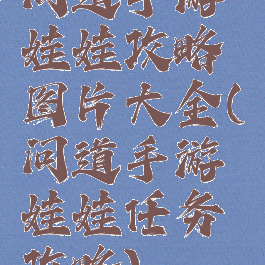 问道手游
娃娃攻略
图片大全(
问道手游
娃娃任务
攻略)